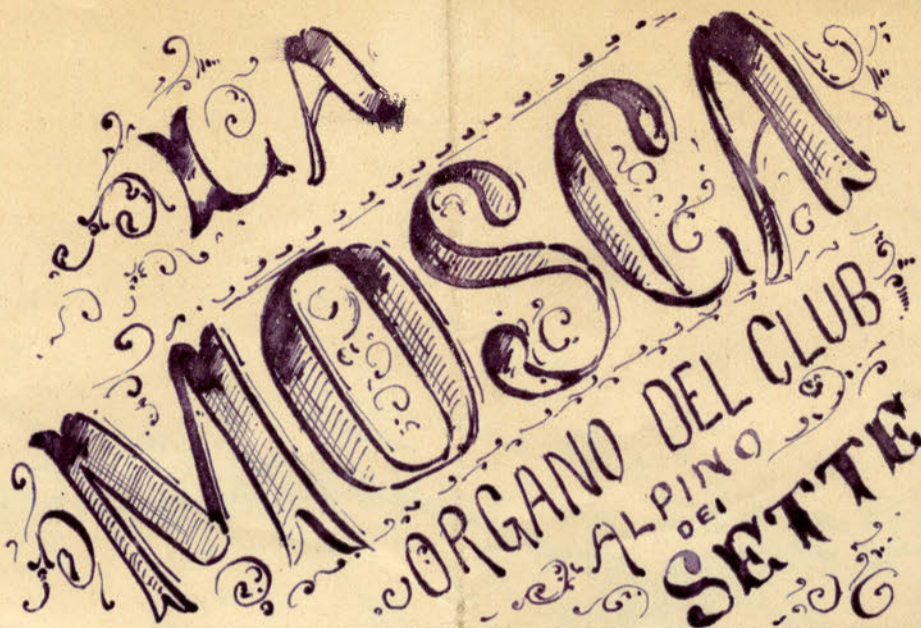 LA
MOSCA
ORGANO DEL CLUB
ALPINO
DEI
SETTE